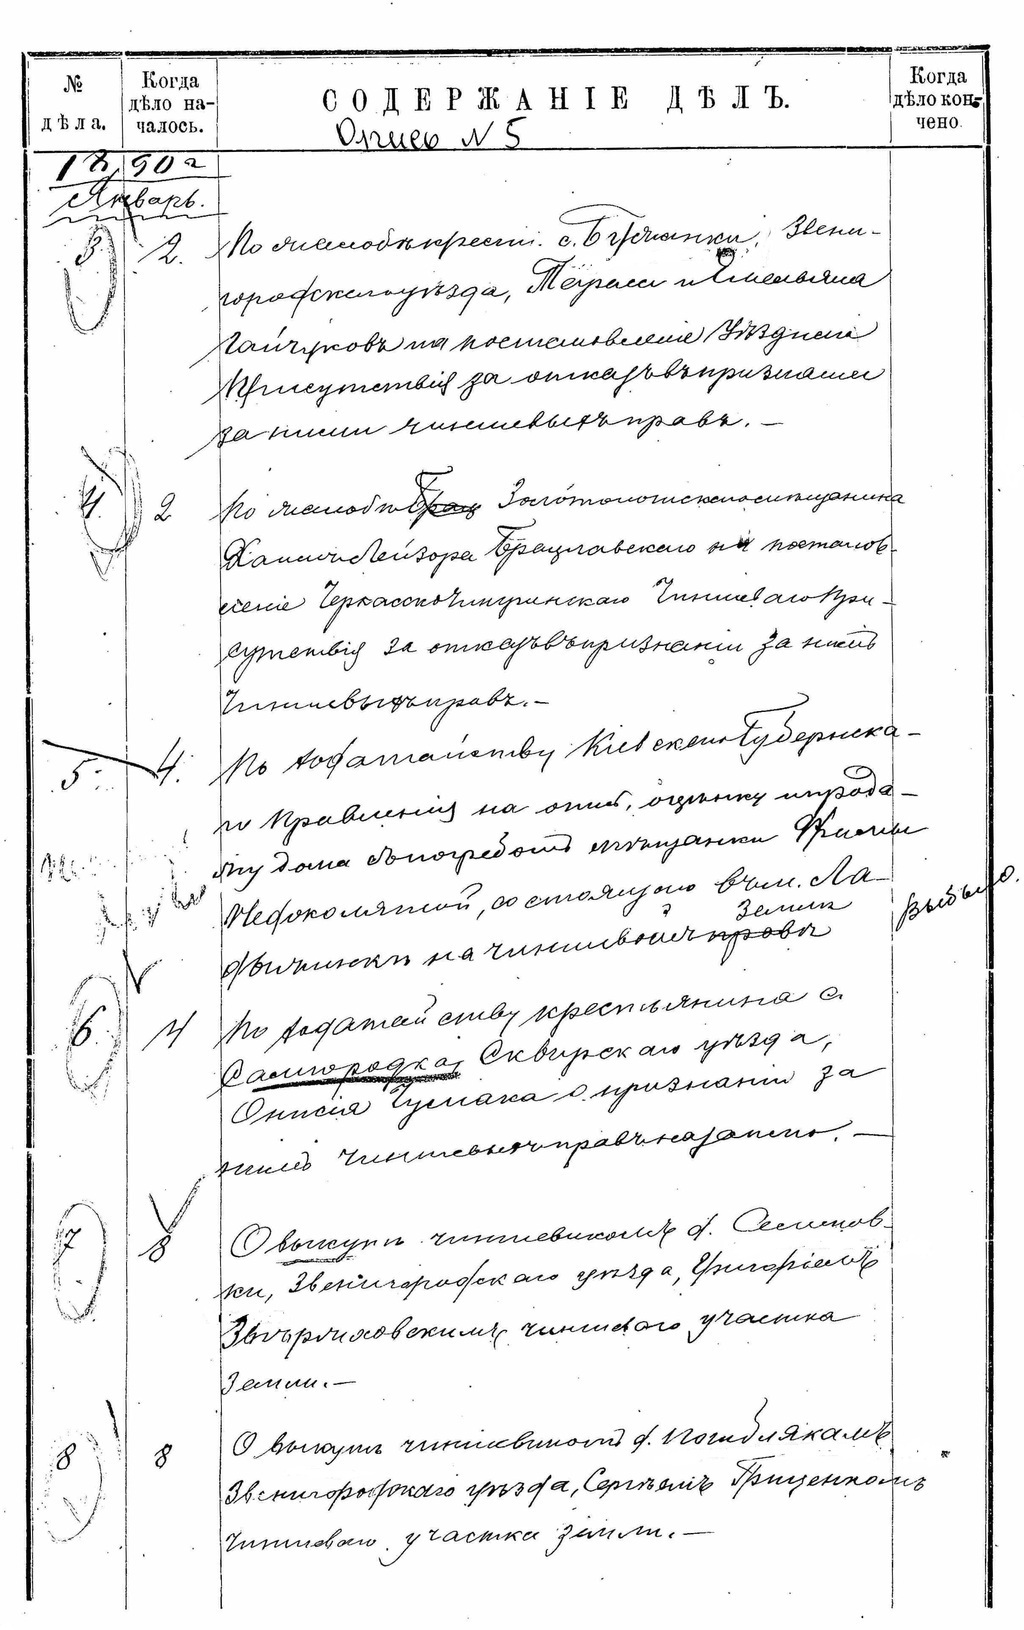 № дѣла.
Когда дѣло началось.
СОДЕРЖАНІЕ ДѢЛЪ.
Когда дѣло кончено.
Опись N 5
1890 г
Январь.
3. 2. По жалобѣ крест. с. Гусакки, Звени-
городскаго уѣзда, Тараса и Емельяна
Гайчуковъ на постановленіе Уѣзднаго
Присутствія за отказъ въ признаніи
за ними чиншевыхъ правъ. —
4. 2 По жалобѣ Золотоношскаго мѣщанина
Хаима Лейзора Брацлавскаго на постанов-
леніе Черкасско Чигиринскаго Чиншеваго При-
сутствія за отказъ въ признаніи за нимъ
Чиншевыхъ правъ. —
5. 4. По ходатайству Кіевскаго Губернска-
го Правленія на опись, оцѣнку и прода-
жу дома съ погребомъ мѣщанки
состоящаго въ м. Ла-
дыжинкѣ на чиншевой землѣ
Выбыло.
6. 4 По ходатайству крестьянина с.
Самгородка, Сквирскаго уѣзда,
Онисія Чумака о признаніи за
нимъ чиншевыхъ правъ на землю. —
7 8 О выкупѣ чиншевикомъ д. Селиков-
ки, Звенигородскаго уѣзда, Григоріемъ
чиншеваго участка
земли. —
8 8 О выкупѣ чиншевикомъ д.
Звенигородскаго уѣзда, Сергѣемъ Грищенкомъ
чиншеваго участка земли. —